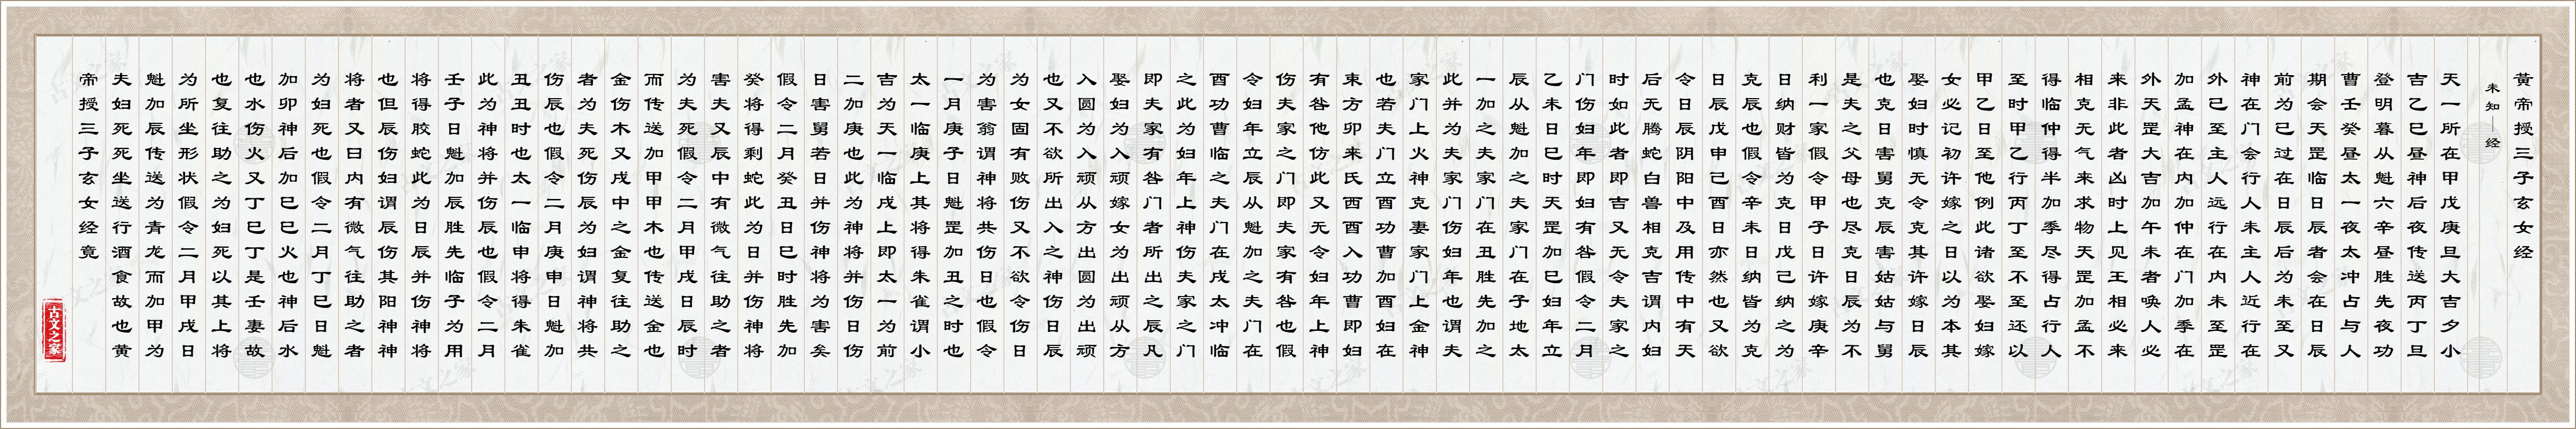 黄帝授三子玄女经
未知—经
天一所在甲戊庚旦大吉夕小
吉乙巳昼神后夜传送丙丁旦
登明暮从魁六辛昼胜先夜功
曹壬癸昼太一夜太冲占与人
期会天罡临日辰者会在日辰
前为已过在日辰后为未至又
神在门会行人未主人近行在
外已至主人远行在内未至罡
加孟神在内加仲在门加季在
外天罡大吉加午未者唤人必
来非此者凶时上见王相必来
相克无气来求物天罡加孟不
得临仲得半加季尽得占行人
至时甲乙行丙丁至不至还以
甲乙日至他例此诸欲娶妇嫁
女必记初许嫁之日以为本其
娶妇时慎无令克其许嫁日辰
也克日害舅克辰害姑姑与舅
是夫之父母也尽克日辰为不
利一家假令甲子日许嫁庚辛
日纳财皆为克日戊己纳之为
克辰也假令辛未日纳皆为克
日辰戊申己酉日亦然也又欲
令日辰阴阳中及用传中有天
后无腾蛇白兽相克吉谓内妇
时如此者即吉又无令夫家之
门伤妇年即妇有咎假令二月
乙未日巳时天罡加巳妇年立
辰从魁加之夫家门在子地太
一加之夫家门在丑胜先加之
此并为夫家门伤妇年也谓夫
家门上火神克妻家门上金神
也若夫门立酉功曹加酉妇在
束方卯来氏酉酉入功曹即妇
有咎他仿此又无令妇年上神
伤夫家之门即夫家有咎也假
令妇年立辰从魁加之夫门在
酉功曹临之夫门在戌太冲临
之此为妇年上神伤夫家之门
即夫家有咎门者所出之辰凡
娶妇为入顽嫁女为出顽从方
入圆为入顽从方出圆为出顽
也又不欲所出入之神伤日辰
为女固有败伤又不欲令伤日
为害翁谓神将共伤日也假令
一月庚子日魁罡加丑之时也
太一临庚上其将得朱雀谓小
吉为天一临戌上即太一为前
二加庚也此为神将并伤日伤
日害舅若日并伤神将为害矣
假令二月癸丑日巳时胜先加
癸将得剩蛇此为日并伤神将
害夫又辰中有微气往助之者
为夫死假令二月甲戌日辰时
而传送加甲甲木也传送金也
金伤木又戌中之金复往助之
者为夫死伤辰为妇谓神将共
伤辰也假令二月庚申日魁加
丑丑时也太一临申将得朱雀
此为神将并伤辰也假令二月
壬子日魁加辰胜先临子为用
将得胶蛇此为日辰并伤神将
也但辰伤妇谓辰伤其阳神神
将者又曰内有微气往助之者
为妇死也假令二月丁巳日魁
加卯神后加巳巳火也神后水
也水伤火又丁巳丁是壬妻故
也复往助之为妇死以其上将
为所坐形状假令二月甲戌日
魁加辰传送为青龙而加甲为
夫妇死死坐送行酒食故也黄
帝授三子玄女经竟
古文之家